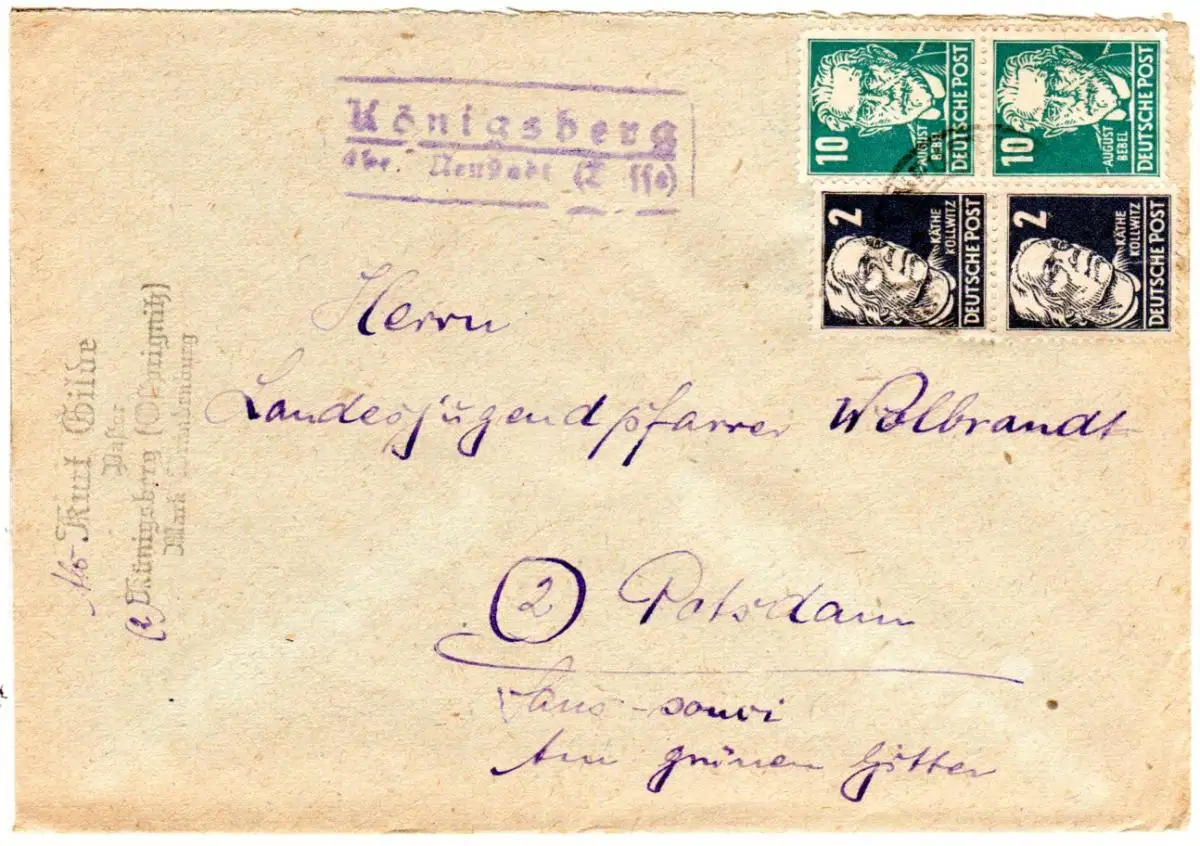 Königsberg
über Neustadt (Dosse)
10
AUGUST
BEBEL
DEUTSCHE POST
10
AUGUST
BEBEL
DEUTSCHE POST
2
KÄTHE
KOLLWITZ
DEUTSCHE POST
2
KÄTHE
KOLLWITZ
DEUTSCHE POST
Herrn
Landesjugendpfarrer Wolbrandt
2 Potsdam
Sans-souci
Am grünen Gitter
Gilde
Pastor
(2) Königsberg (Ostprignitz)
Mark Brandenburg